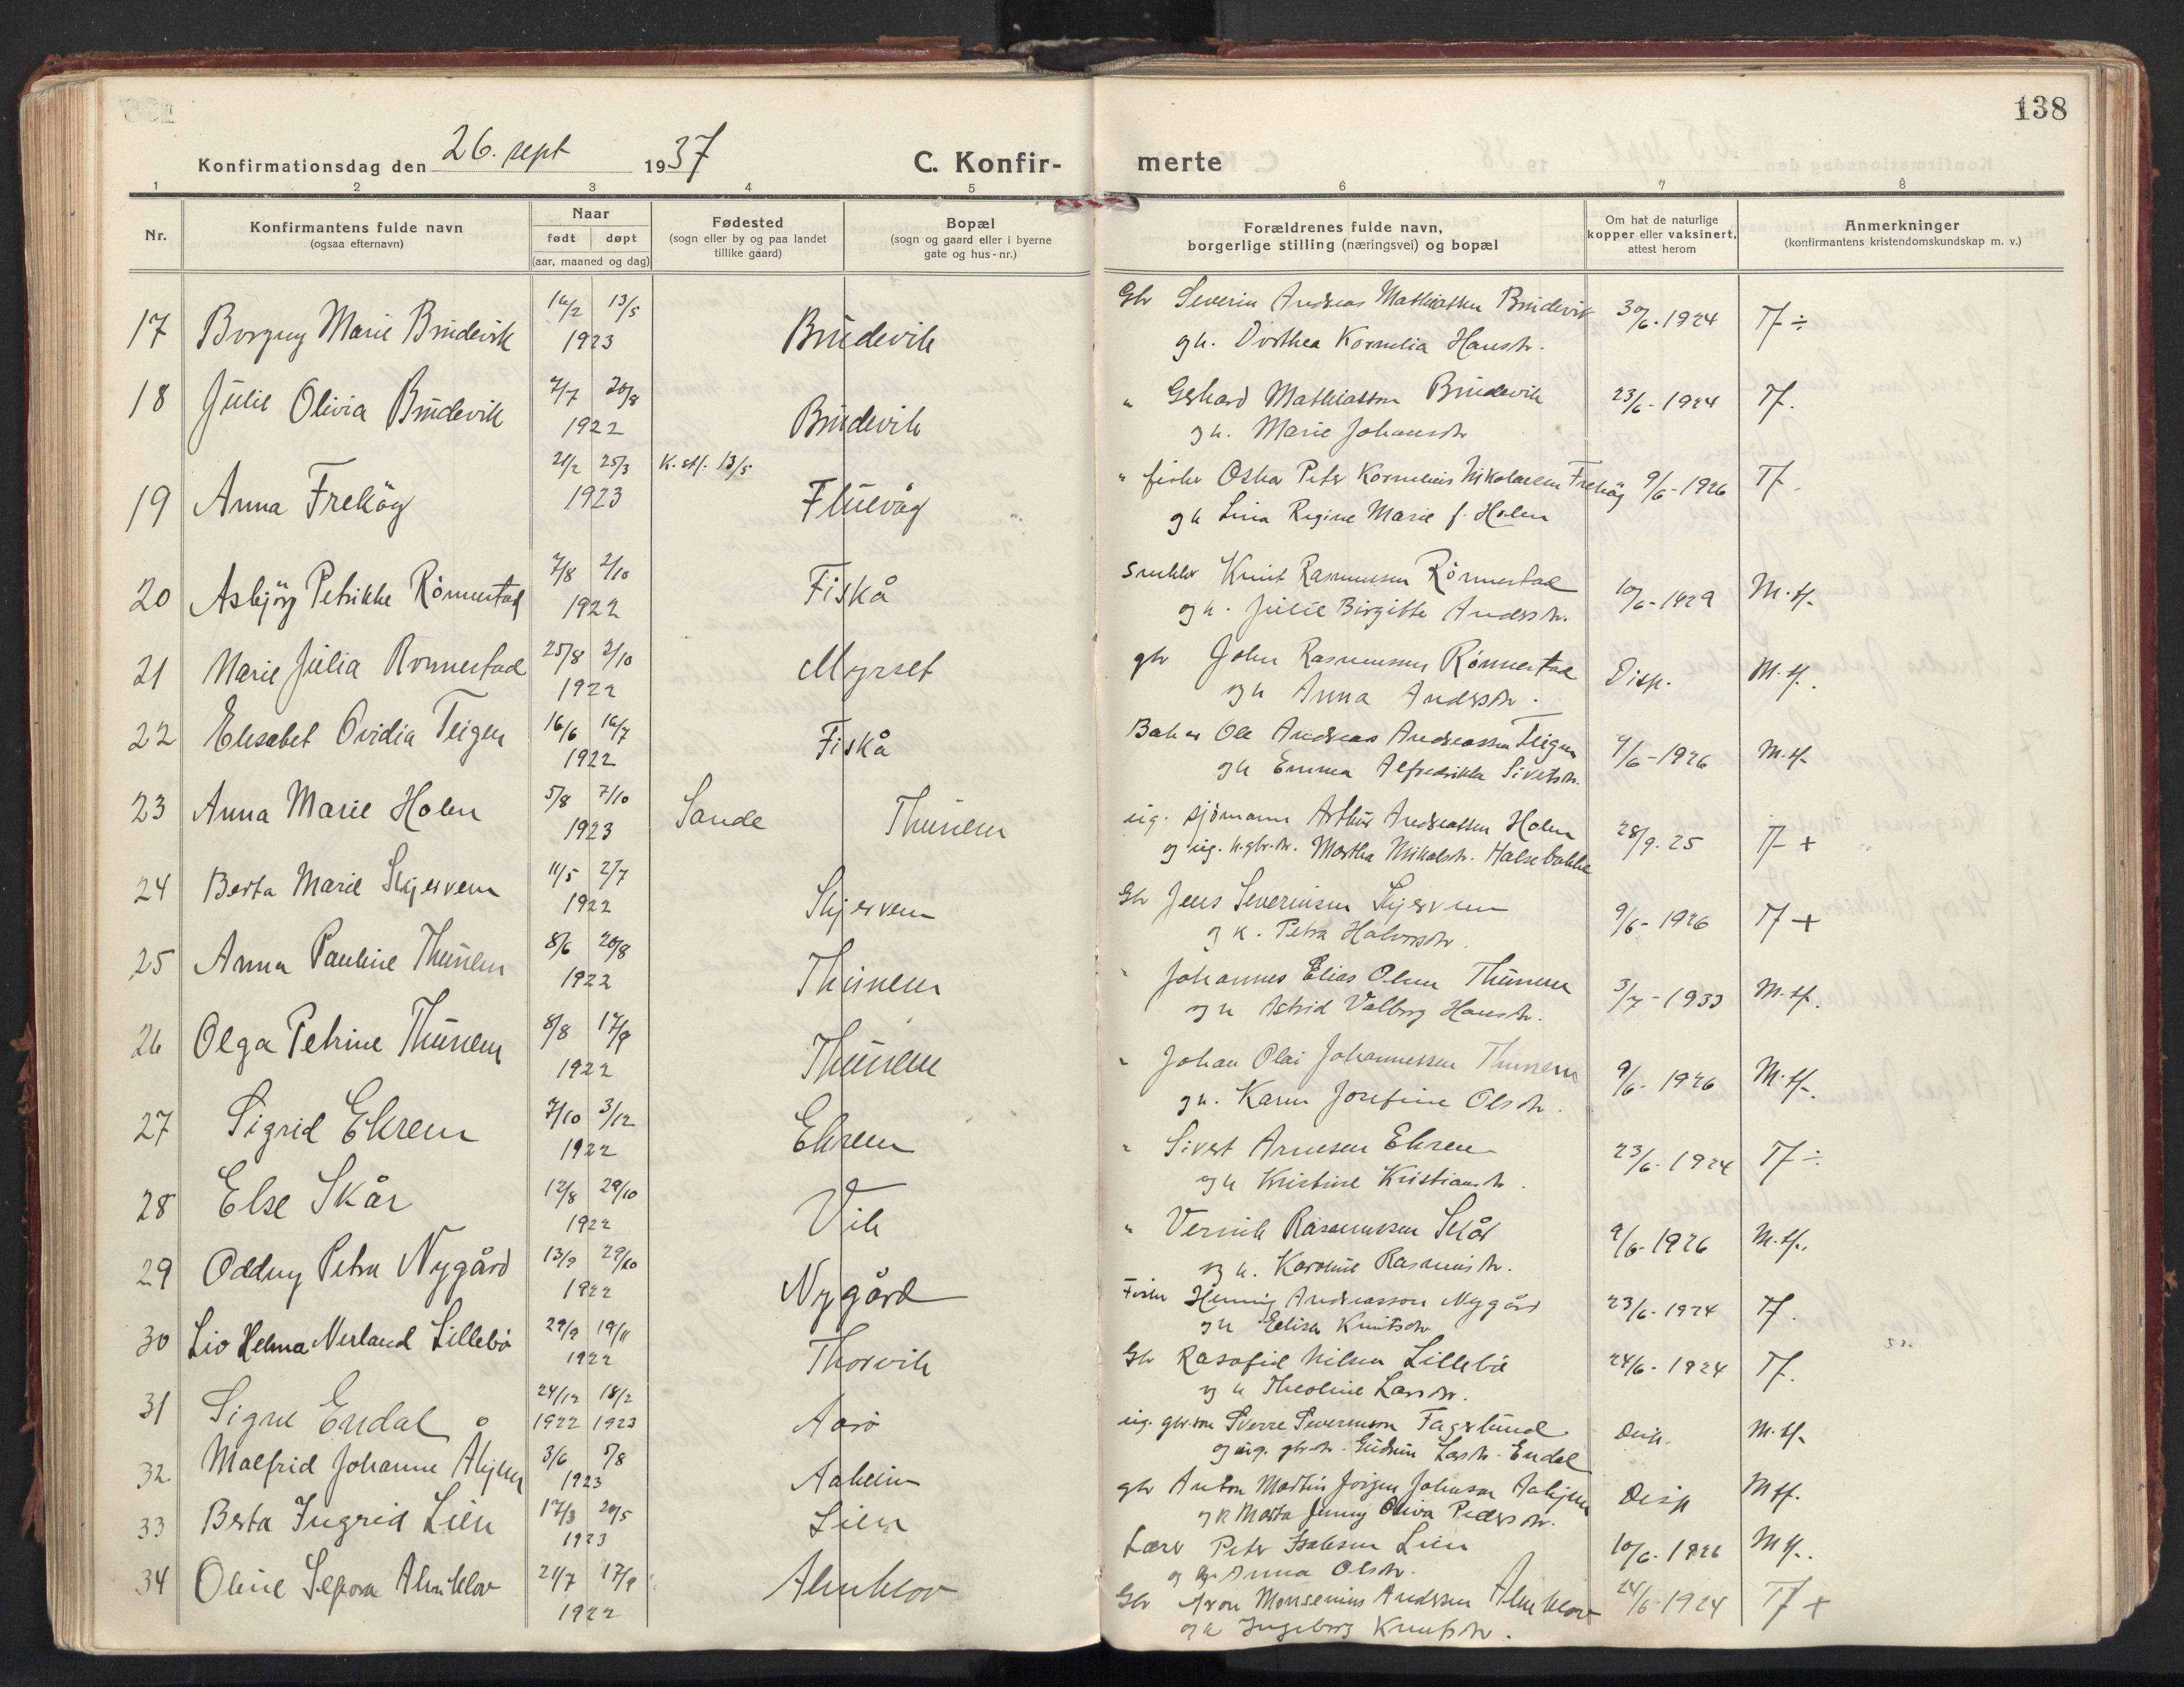 138
Konfirmationsdag den 26. sept 1937
C. Konfir-
merte
1 2 3 4 5 6 7 8
Nr.
Konfirmantens fulde navn
(ogsaa efternavn)
Naar
født døpt
(aar, maaned og dag)
Fødested
(sogn eller by og paa landet
tillike gaard)
Bopæl
(sogn og gaard eller i byerne
gate og hus-nr.)
Forældrenes fulde navn,
borgerlige stilling (næringsvei) og bopæl
Om hat de naturlige
kopper eller vaksinert,
attest herom
Anmerkninger
(konfirmantens kristendomskundskap m. v.)
17 Borgny Marie Brudevik 14/2 13/5 1923 Brudevik
Gbr Severin Andreas Mathiassen Brudevik 30/6-1924 Tf ÷
og h. Dorthea Kornelia Hansdr.
18 Julie Olivia Brudevik 2/7 20/8 1922 Brudevik
" Gerhard Mathiassen Brudevik 23/6-1924 Tf.
og h. Marie Johansdr
19 Anna Frekøy 21/2 25/3 K. stf. 13/5 1923 Fluevåg
" fisker Oskar Peter Kornelius Nikolaisen Frekøy 9/6-1926 Tf.
og h Lina Regine Marie f. Holen
20 Asbjørg Petrikke Rønnestad 7/8 2/10 1922 Fiskå
Snekker Knut Rasmussen Rønnestad 10/6-1929 M. tf.
og h. Julie Birgitte Andersdr.
21 Marie Julia Rønnestad 25/8 2/10 1922 Myrset
gbr John Rasmussen Rønnestad Disp. M. tf.
og h Anna Andersdr.
22 Elisabet Ovidia Teigen 16/6 16/7 1922 Fiskå
Baker Ole Andreas Andreassen Teigen 9/6-1926 M. tf.
og h Emma Alfredrikke Sivertsdr.
23 Anna Marie Holen 5/8 7/10 1923 Sande Thunem
ug. sjømann Arthur Andreassen Holen 28/9. 25 Tf +
og ug. Martha Nikolsdr. Halsebakke
24 Berta Marie Skjervem 11/5 2/7 1922 Skjervem
Gbr Jens Severinsen Skjervem 9/6-1926 Tf +
og k. Petra Halvorsdr.
25 Anna Pauline Thunem 8/6 20/8 1922 Thunem
" Johannes Elias Olsen Thunem 3/7-1933 M. tf.
og h Astrid Valborg Hansdr.
26 Olga Petrine Thunem 8/8 17/9 1922 Thunem
" Johan Olai Johannessen Thunem 9/6-1926 M. tf.
og h. Karen Josefine Olsdr.
27 Sigrid Ekrem 7/10 3/12 1922 Ekrem
" Sivert Arnesen Ekrem 23/6-1924 Tf ÷
og h Kristine Kristiansdr.
28 Else Skår 12/8 29/10 1922 Vik
" Vernik Rasmussen Skår 9/6-1926 M. tf.
og h. Karoline Rasmusdr.
29 Oddny Petra Nygård 13/9 29/10 1922 Nygård
Fisker Henning Andreassen Nygård 23/6-1924 Tf.
og h Elise Knutsdr
30 Liv Helma Nerland Lillebø 29/9 19/11 1922 Thorvik
Gbr Rasofid Nilsen Lillebø 24/6-1924 Tf.
og h Theoline Larsdr.
31 Signe Endal 24/12 1922 18/2 1923 Aarø
ug. gbr.søn Sverre Severinson Fagerlund Disp. M. tf.
og ug. gbr.dr. Gudrun Larsdr. Endal
32 Malfrid Johanne Åhjem 3/6 5/8 1923 Aaheim
gbr Anton Martin Jørgen Johnsen Aahjem Disp M tf.
og k Marta Jenny Oliva Pedersdr.
33 Berta Ingrid Lien 17/3 20/5 1923 Lien
Lærer Peter Isaksen Lien 10/6-1926 M tf.
og h Anna Olsdr.
34 Oline Sepora Almklov 21/7 17/9 1922 Almklov
Gbr Aron Monsenius Andersen Almklov 24/6-1924 Tf +
og h Ingeborg Knutsdr.